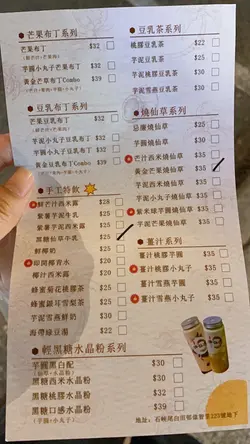 芒果布丁系列
芒果布丁 $32
芋圓小丸子芒果布丁 $32
黃金芒草布丁Combo $39
豆乳布丁系列
豆乳布丁 $32
芋泥小丸子豆乳布丁
黃金豆乳布丁Combo $39
手工特飲
鮮芒汁西米露 $28
紫薯芋泥牛乳 $25
紫薯芋泥西米露 $25
黑糖仙草牛乳
鮮椰奶 $25
即開椰青水 $28
椰汁西米露 $25
蜂蜜菊花桃膠茶 $25
蜂蜜銀耳雪梨茶 $25
芋泥雪燕鮮奶 $30
海帶綠豆湯 $22
豆乳茶系列
桃膠豆乳茶 $22
芋泥豆乳茶 $25
芋泥桃膠豆乳茶 $30
芋泥雪燕豆乳茶 $30
燒仙草系列
燒仙草 $30
芋圓燒仙草 $30
芒汁西米燒仙草 $35
黃金芒汁燒仙草 $35
芋泥西米燒仙草 $35
芋泥小丸子燒仙草 $35
紫米球芋圓燒仙草 $35
薑汁系列
薑汁桃膠芋圓 $35
薑汁桃膠小丸子 $35
薑汁雪燕芋圓 $35
薑汁雪燕小丸子 $35
輕黑糖水晶粉系列
芋圓黑白配 $30
黑糖西米水晶粉 $30
黑糖桃膠水晶粉 $30
黑糖口感水晶粉 $30
地址：石硤尾白田邨偉智里223號地下